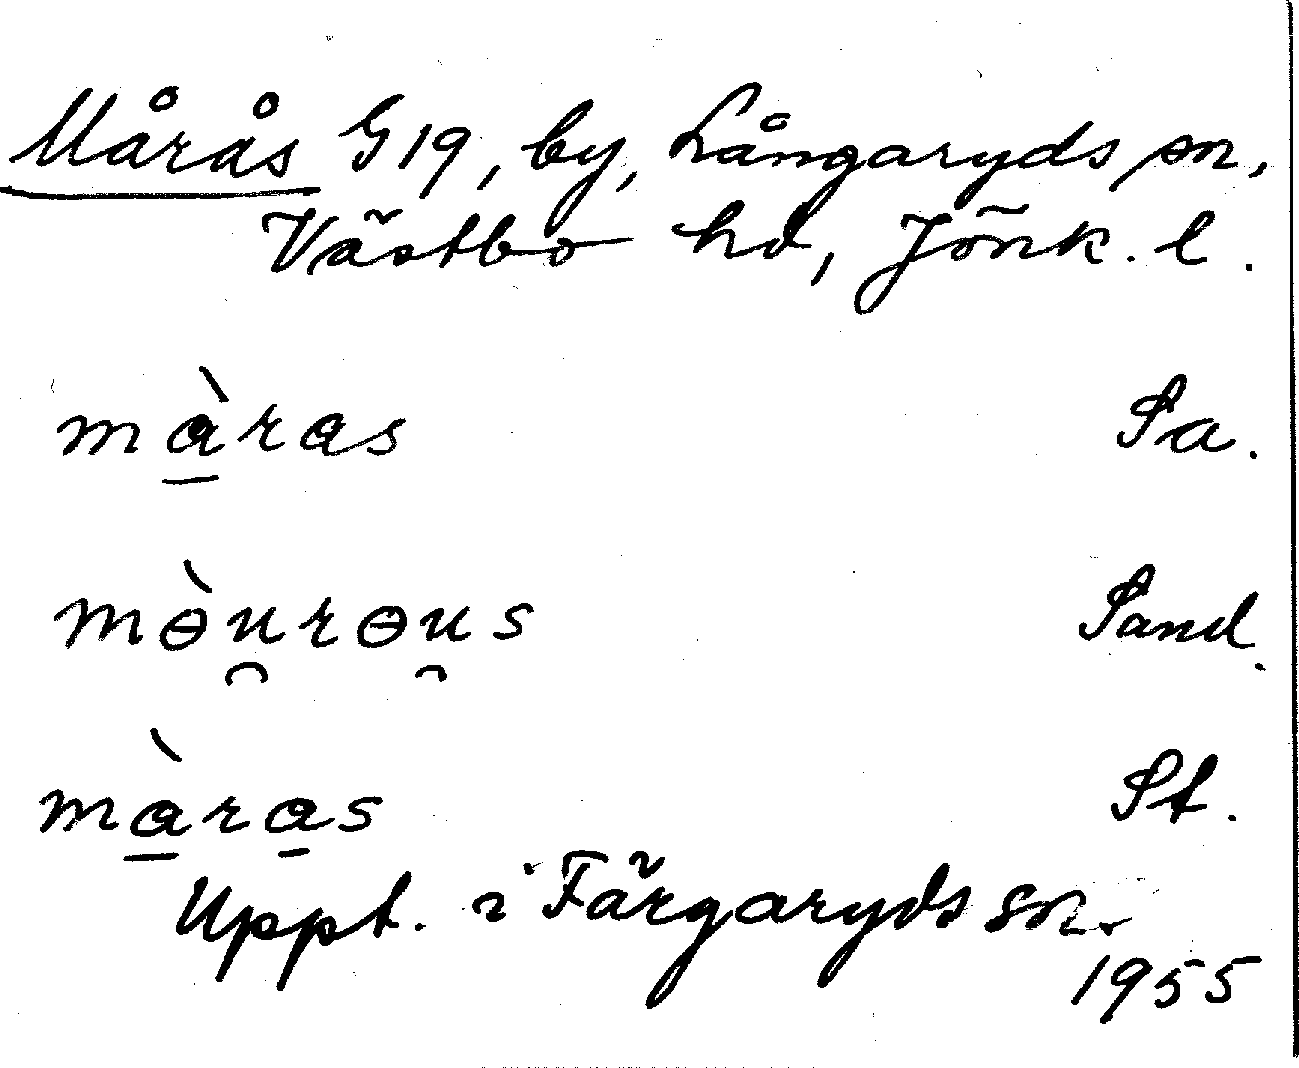 Mårås G19, by, Långaryds sn,
Västbo hd, Jönk. l.
mɑ̱̀rɑs Sa.
mɵ̀u̯rɵu̯s Sand.
mɑ̱̀rɑ̱s St.
Uppt. i Färgaryds sn.
1955